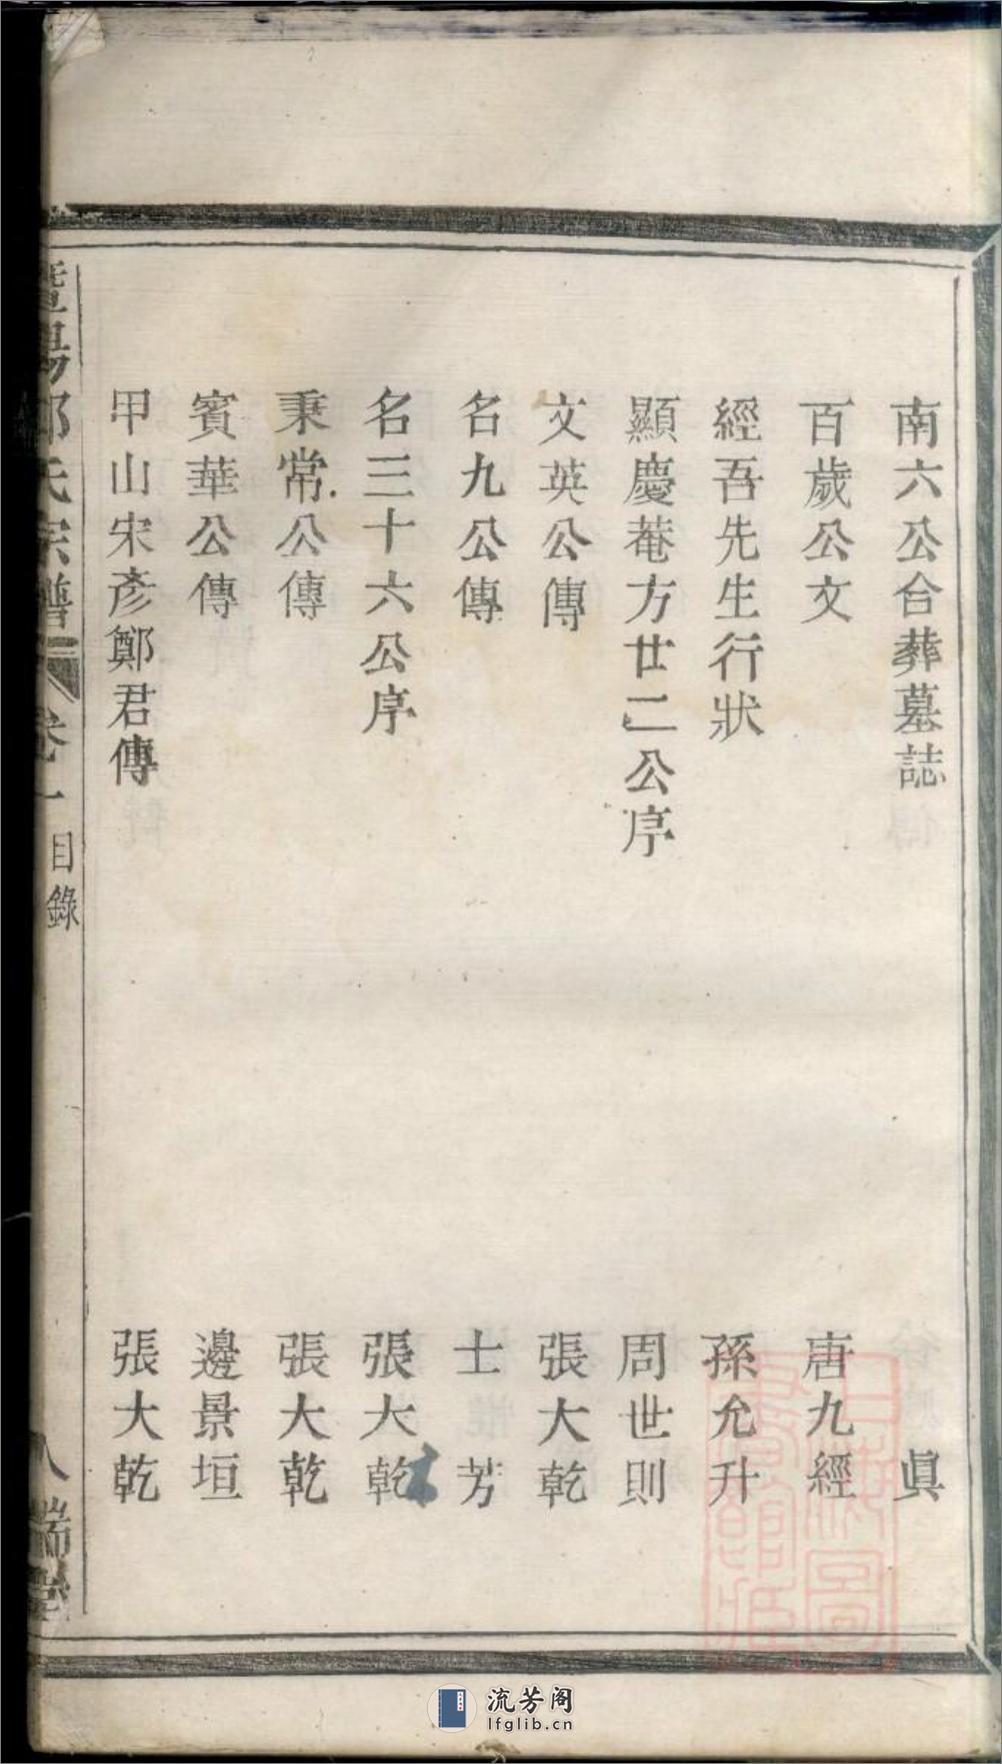 南六公合葬墓誌 眞
百歲公文 唐九經
經吾先生行狀 孫允升
顯慶菴方廿二公序 周世則
文英公傳 張大乾
名九公傳 士芳
名三十六公序 張大乾
秉常公傳 張大乾
賓華公傳 邊景垣
甲山宋彥鄭君傳 張大乾
暨陽 氏宗譜 卷一 目錄 八 瑞堂
上海圖書館藏
流芳阁
lfglib.cn